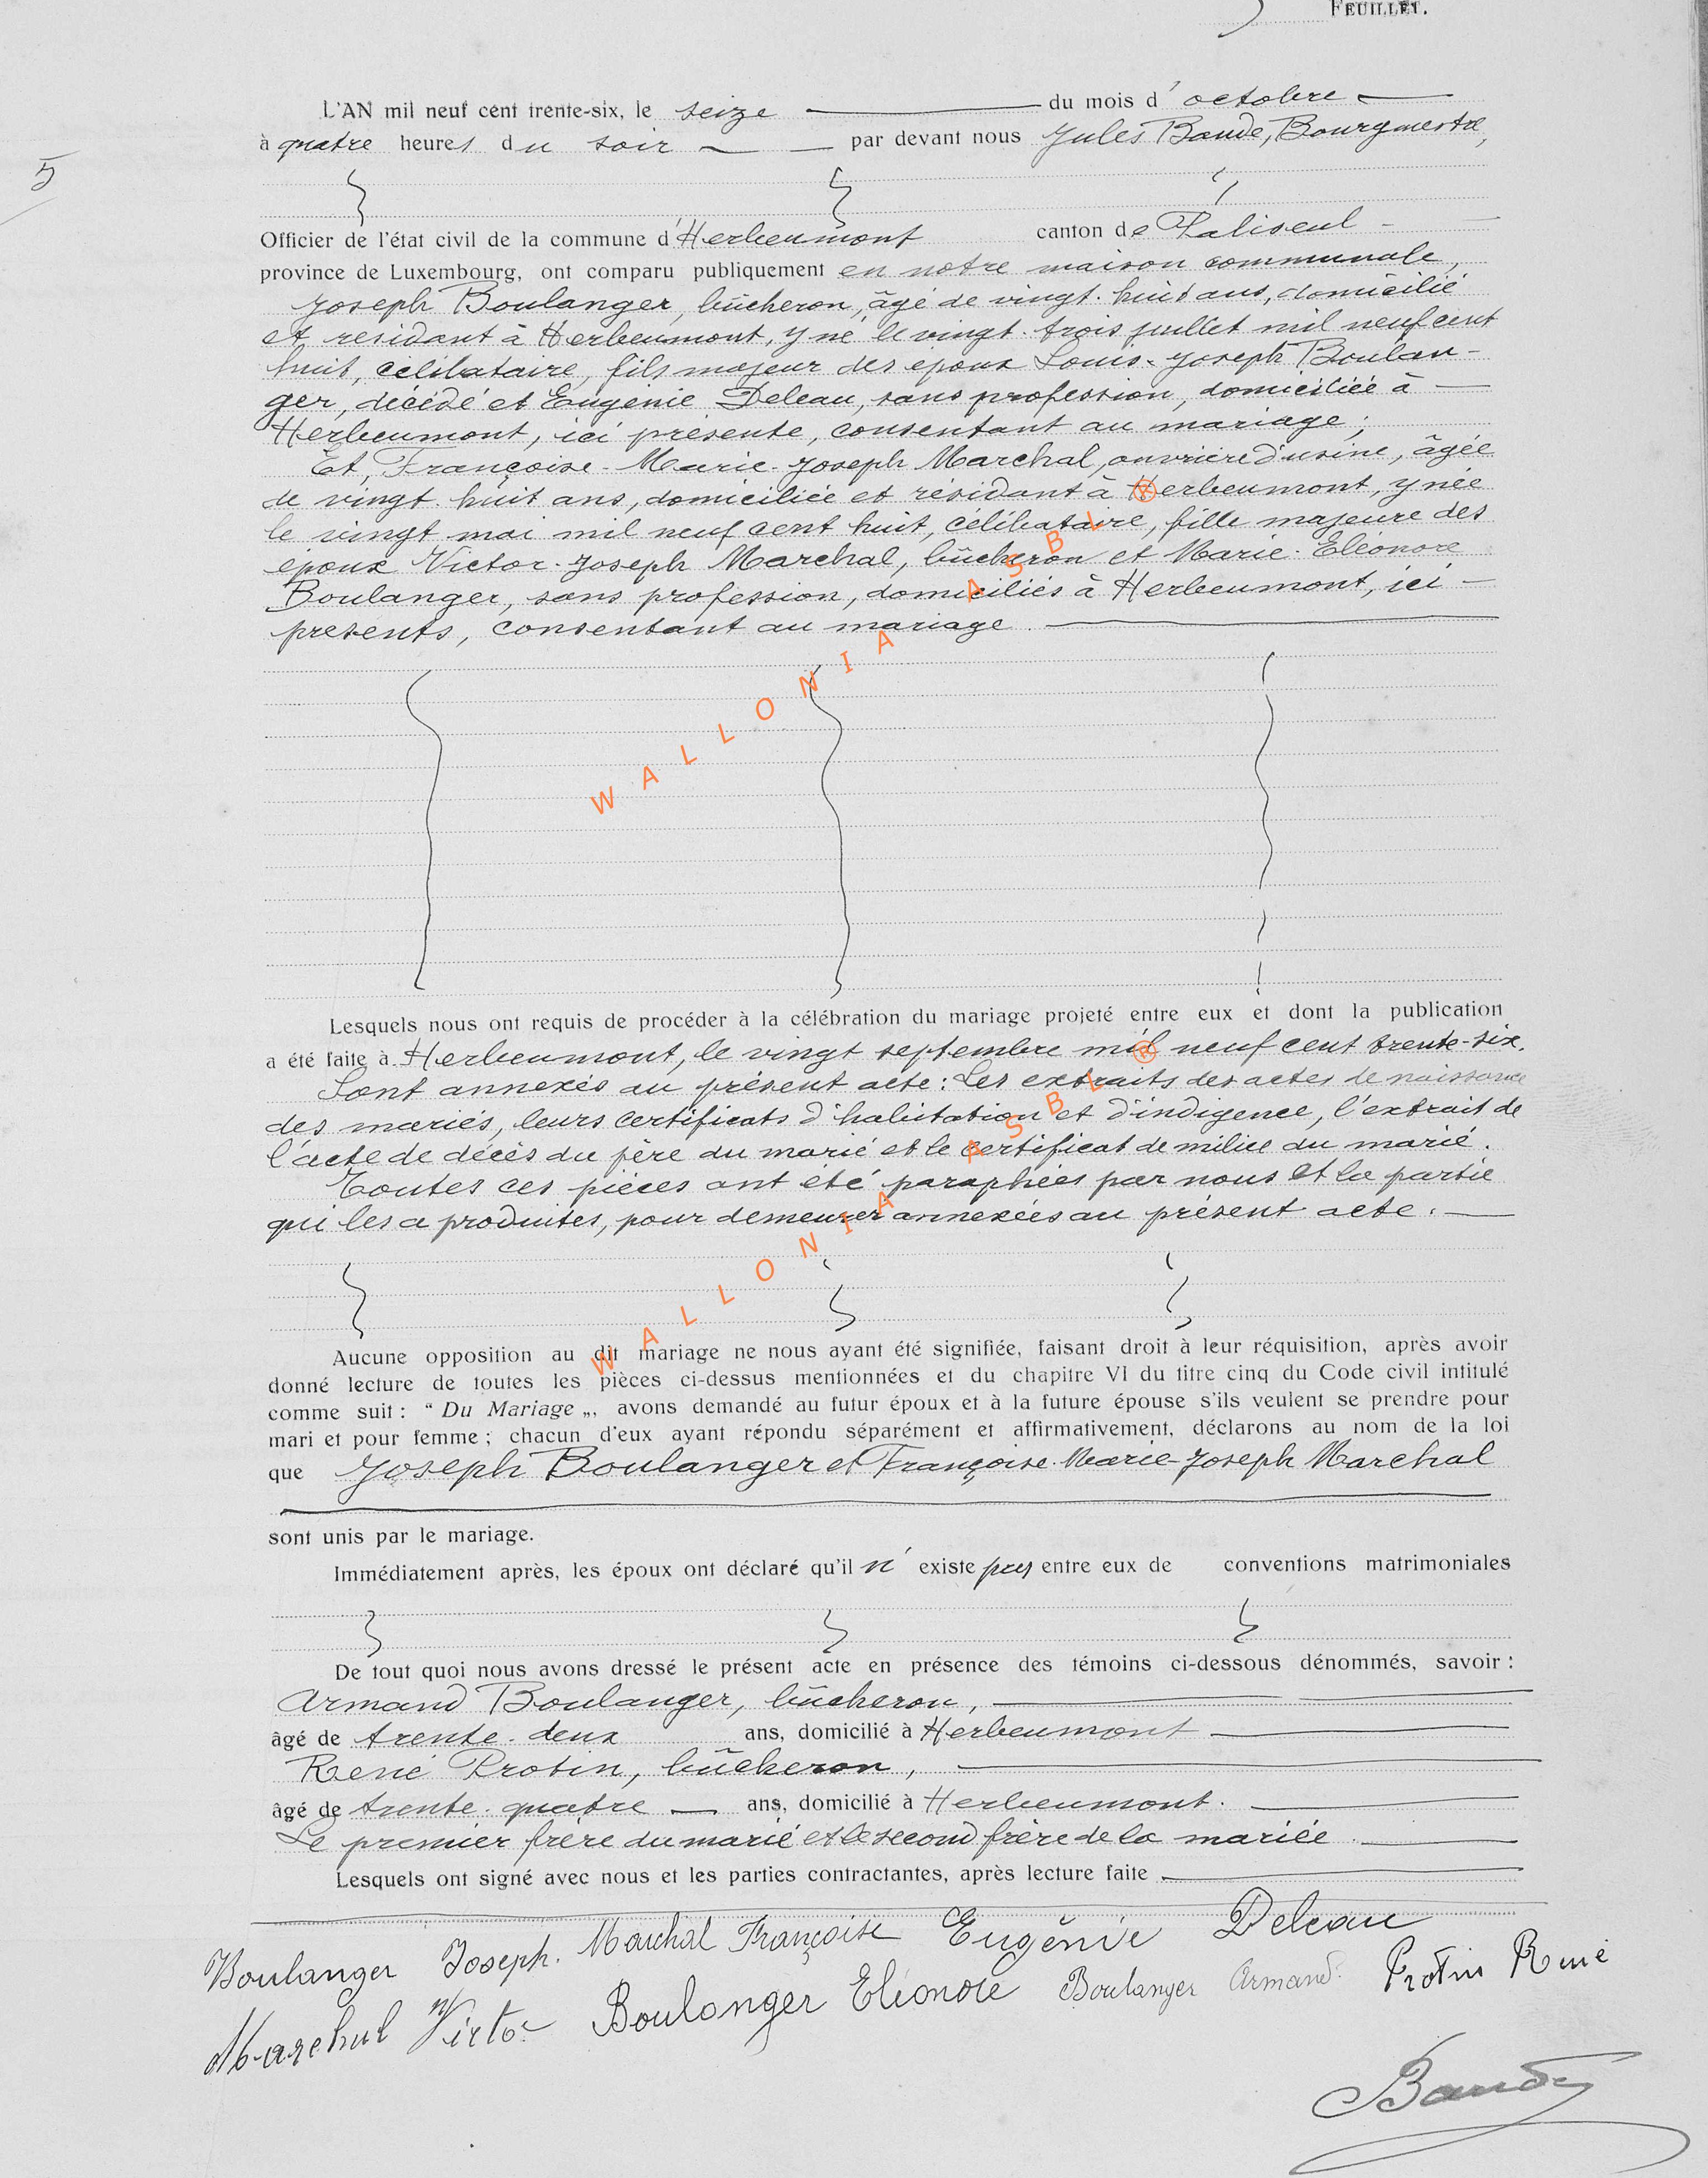 FEUILLET.
5
L'AN mil neuf cent trente-six, le seize du mois d'octobre
à quatre heures du soir par devant nous Jules Baude, Bourgmestre,
Officier de l'état civil de la commune d'Herbeumont canton de Paliseul
province de Luxembourg, ont comparu publiquement en notre maison communale,
Joseph Boulanger, bûcheron, âgé de vingt-huit ans, domicilié
et résidant à Herbeumont, y né le vingt-trois juillet mil neuf cent
huit, célibataire, fils majeur des époux Louis-Joseph Boulan-
ger, décédé et Eugénie Deleau, sans profession, domiciliée à
Herbeumont, ici présente, consentant au mariage;
Et, Françoise-Marie-Joseph Marchal, ouvrière d'usine, âgée
de vingt-huit ans, domiciliée et résidant à Herbeumont, y née
le vingt mai mil neuf cent huit, célibataire, fille majeure des
époux Victor-Joseph Marchal, bûcheron et Marie-Eléonore
Boulanger, sans profession, domiciliés à Herbeumont, ici
présents, consentant au mariage.
WALLONIA ASBL ®
Lesquels nous ont requis de procéder à la célébration du mariage projeté entre eux et dont la publication
a été faite à Herbeumont, le vingt septembre mil neuf cent trente-six.
Sont annexés au présent acte: Les extraits des actes de naissance
des mariés, leurs certificats d'habitation et d'indigence, l'extrait de
l'acte de décès du père du marié et le certificat de milice du marié.
Toutes ces pièces ont été paraphées par nous et la partie
qui les a produites, pour demeurer annexées au présent acte.
WALLONIA ASBL ®
Aucune opposition au dit mariage ne nous ayant été signifiée, faisant droit à leur réquisition, après avoir
donné lecture de toutes les pièces ci-dessus mentionnées et du chapitre VI du titre cinq du Code civil intitulé
comme suit : “ Du Mariage „, avons demandé au futur époux et à la future épouse s'ils veulent se prendre pour
mari et pour femme ; chacun d'eux ayant répondu séparément et affirmativement, déclarons au nom de la loi
que Joseph Boulanger et Françoise-Marie-Joseph Marchal
sont unis par le mariage.
Immédiatement après, les époux ont déclaré qu'il n'existe pas entre eux de conventions matrimoniales
De tout quoi nous avons dressé le présent acte en présence des témoins ci-dessous dénommés, savoir :
Armand Boulanger, bûcheron,
âgé de trente-deux ans, domicilié à Herbeumont
René Protin, bûcheron,
âgé de trente-quatre ans, domicilié à Herbeumont.
Le premier frère du marié et le second frère de la mariée.
Lesquels ont signé avec nous et les parties contractantes, après lecture faite
Boulanger Joseph. Marchal Françoise Eugénie Deleau
Marchal Victor Boulanger Eléonore Boulanger Armand. Protin René
Baude